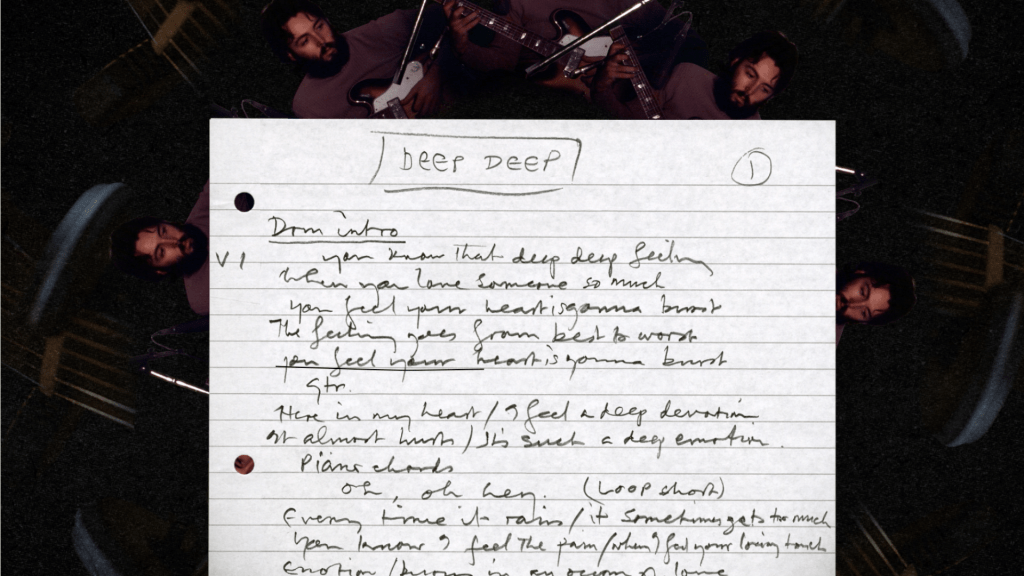 DEEP DEEP
1
Drm intro
V1 you know that deep deep feeling
when you love someone so much
you feel your heart is gonna burst
The feeling goes from best to worst
you feel your heart is gonna burst
Gtr.
Here in my heart / I feel a deep devotion
It almost hurts / It's such a deep emotion
Piano chords
oh, oh hey. (Loop short)
Every time it rains / it sometimes gets too much
You know I feel the pain / when I feel your loving touch
Emotion / burns in an ocean of love